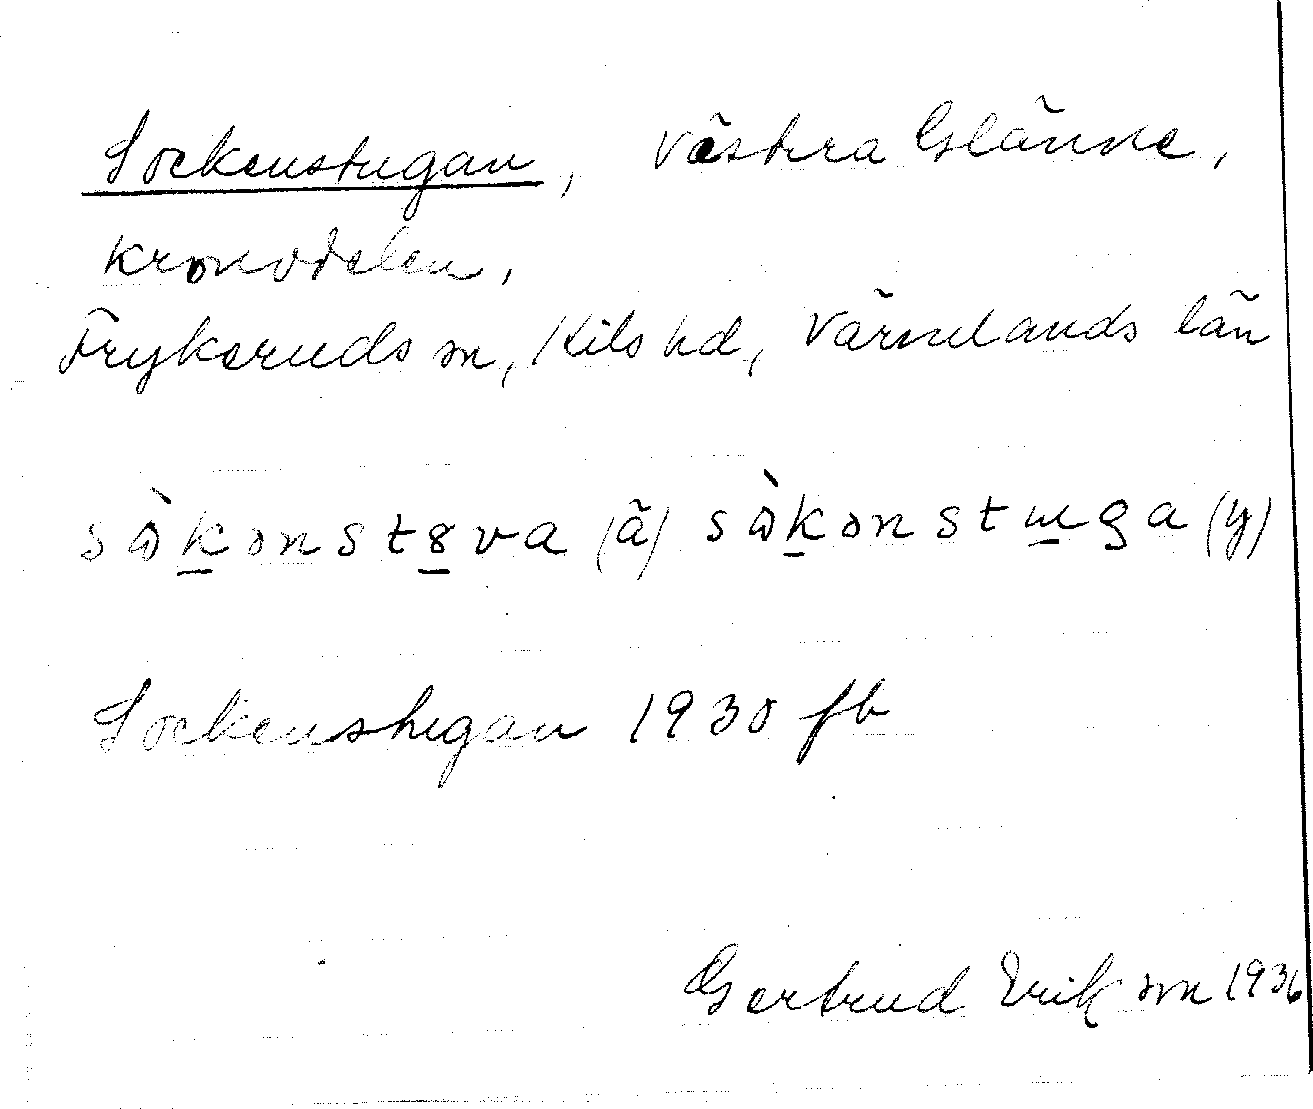 Sockenstugan, Västra Glänne,
kronodelen,
Frykeruds sn, Kils hd, Värmlands län
sὼkənstȣva (ä) sὼkənstɯga (y)
Sockenstugan 1930 fb
Gertrud Erikson 1936